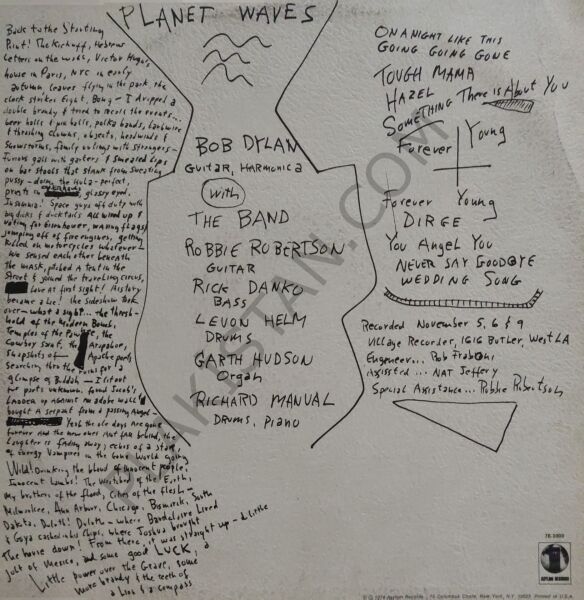 PLANET WAVES
Back to the Starting
Point! The Kickoff, Hebrew
letters on the walls, Victor Hugo's
house in Paris, NYC in early
autumn, leaves flying in the park, the
clock strikes Eight, Bong - I dropped a
double brandy & tried to recall the events...
beer halls & pin balls, polka bands, barbwire
& thrashing clowns, objects, headwinds &
Snowstorms, family outings with strangers -
Furious gals with garters & smeared lips
on bar stools that stank from sweating
pussy - doing the Hula - perfect,
priests in overhauls, glassy eyed,
Insomnia! Space guys off duty with
big dicks & ducktails All wired up &
voting for Eisenhower, waving flags &
jumping off of fire engines, getting
killed on motorcycles whatever -
We sensed each other beneath
the mask, pitched a tent in the
Street & joined the traveling circus,
love at first sight! History
became a lie! the sideshow took
over - what a sight... the thresh-
hold of the Modern Bomb,
Temples of the Pawnee, the
Cowboy Saint, the Arapahoe,
Snapshots of Apache poets
Searching thru the ruins for a
glimpse of Buddah - I lit out
for parts unknown, found Jacob's
Ladder up against an adobe wall &
bought A serpent from a passing Angel -
Yeah the old days are gone
forever And the new ones Ant far behind, the
Laughter is fading away, echos of a star,
of Energy Vampires in the Gone World going
Wild! Drinking the blood of innocent people,
Innocent Lambs! The Wretched of the Earth,
My brothers of the flood, Cities of the flesh -
Milwaukee, Ann Arbor, Chicago, Bismarck, South
Dakota, Duluth! Duluth - where Baudelaire Lived
& Goya cashed in his Chips, where Joshua brought
The house down! From there, it was straight up - a Little
jolt of Mexico, and some good LUCK, a
Little power over the Grave, some
More brandy & the teeth of
a Lion & a compass
BOB DYLAN
Guitar, Harmonica
With
THE BAND
ROBBIE ROBERTSON
GUITAR
RICK DANKO
BASS
LEVON HELM
DRUMS
GARTH HUDSON
Organ
RICHARD MANUAL
DRUMS, Piano
ON A NIGHT LIKE THIS
GOING GOING GONE
TOUGH MAMA
HAZEL
SOMETHING There is About You
Forever Young
Forever Young
DIRGE
You Angel You
NEVER SAY GOODBYE
WEDDING SONG
Recorded November 5, 6 & 9
Village Recorder, 1616 Butler, West LA
Engineer... Rob Fraboni
Assisted... NAT Jeffery
Special Assistance... Robbie Robertson
7E 1003
ASYLUM RECORDS
© 1974 Asylum Records
Printed in U.S.A.